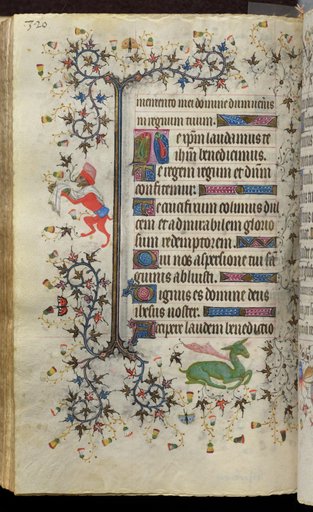 320
memento mei domine dum veneris
in regnum tuum.
Te xp̄m laudamus te
ihm̄ benedicimus.
Te regem regum et dūm
confitemur:
Te sanctissimum colimus dul
cem et admirabilem glorio
sum redemptorem.
Qui nos aspersione tui san
guinis abluisti.
Dignus es domine deus
ihesus noster.
Accipere laudem benedictio